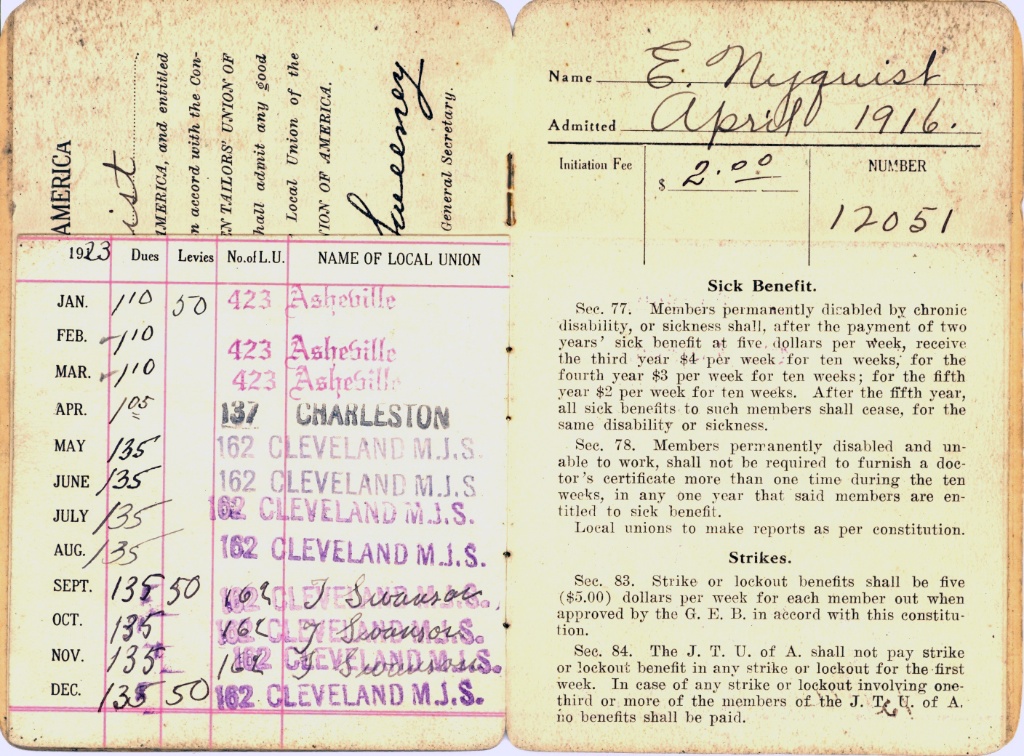 AMERICA
ist
MERICA, and entitled
n accord with the Con-
N TAILORS' UNION OF
hall admit any good
Local Union of the
ION OF AMERICA.
Sweeney
General Secretary.
1923 Dues Levies No. of L.U. NAME OF LOCAL UNION
JAN. 1 10 50 423 Asheville
FEB. 1 10 423 Asheville
MAR. 1 10 423 Asheville
APR. 1 05 137 CHARLESTON
MAY 135 162 CLEVELAND M.J.S.
JUNE 135 162 CLEVELAND M.J.S
JULY 135 162 CLEVELAND M.J.S.
AUG. 135 162 CLEVELAND M.J.S.
SEPT. 135 50 162 CLEVELAND M.J.S. 162 J Swanson
OCT. 135 162 CLEVELAND M.J.S. 162 J Swanson
NOV. 135 162 CLEVELAND M.J.S. 162 J Swanson
DEC. 135 50 162 CLEVELAND M.J.S.
Name E. Nyquist
Admitted April 1916.
Initiation Fee $ 2.00 NUMBER
12051
Sick Benefit.
Sec. 77. Members permanently disabled by chronic
disability, or sickness shall, after the payment of two
years' sick benefit at five dollars per week, receive
the third year $4 per week for ten weeks, for the
fourth year $3 per week for ten weeks; for the fifth
year $2 per week for ten weeks. After the fifth year,
all sick benefits to such members shall cease, for the
same disability or sickness.
Sec. 78. Members permanently disabled and un-
able to work, shall not be required to furnish a doc-
tor's certificate more than one time during the ten
weeks, in any one year that said members are en-
titled to sick benefit.
Local unions to make reports as per constitution.
Strikes.
Sec. 83. Strike or lockout benefits shall be five
($5.00) dollars per week for each member out when
approved by the G. E. B. in accord with this constitu-
tion.
Sec. 84. The J. T. U. of A. shall not pay strike
or lockout benefit in any strike or lockout for the first
week. In case of any strike or lockout involving one-
third or more of the members of the J. T. U. of A.
no benefits shall be paid.